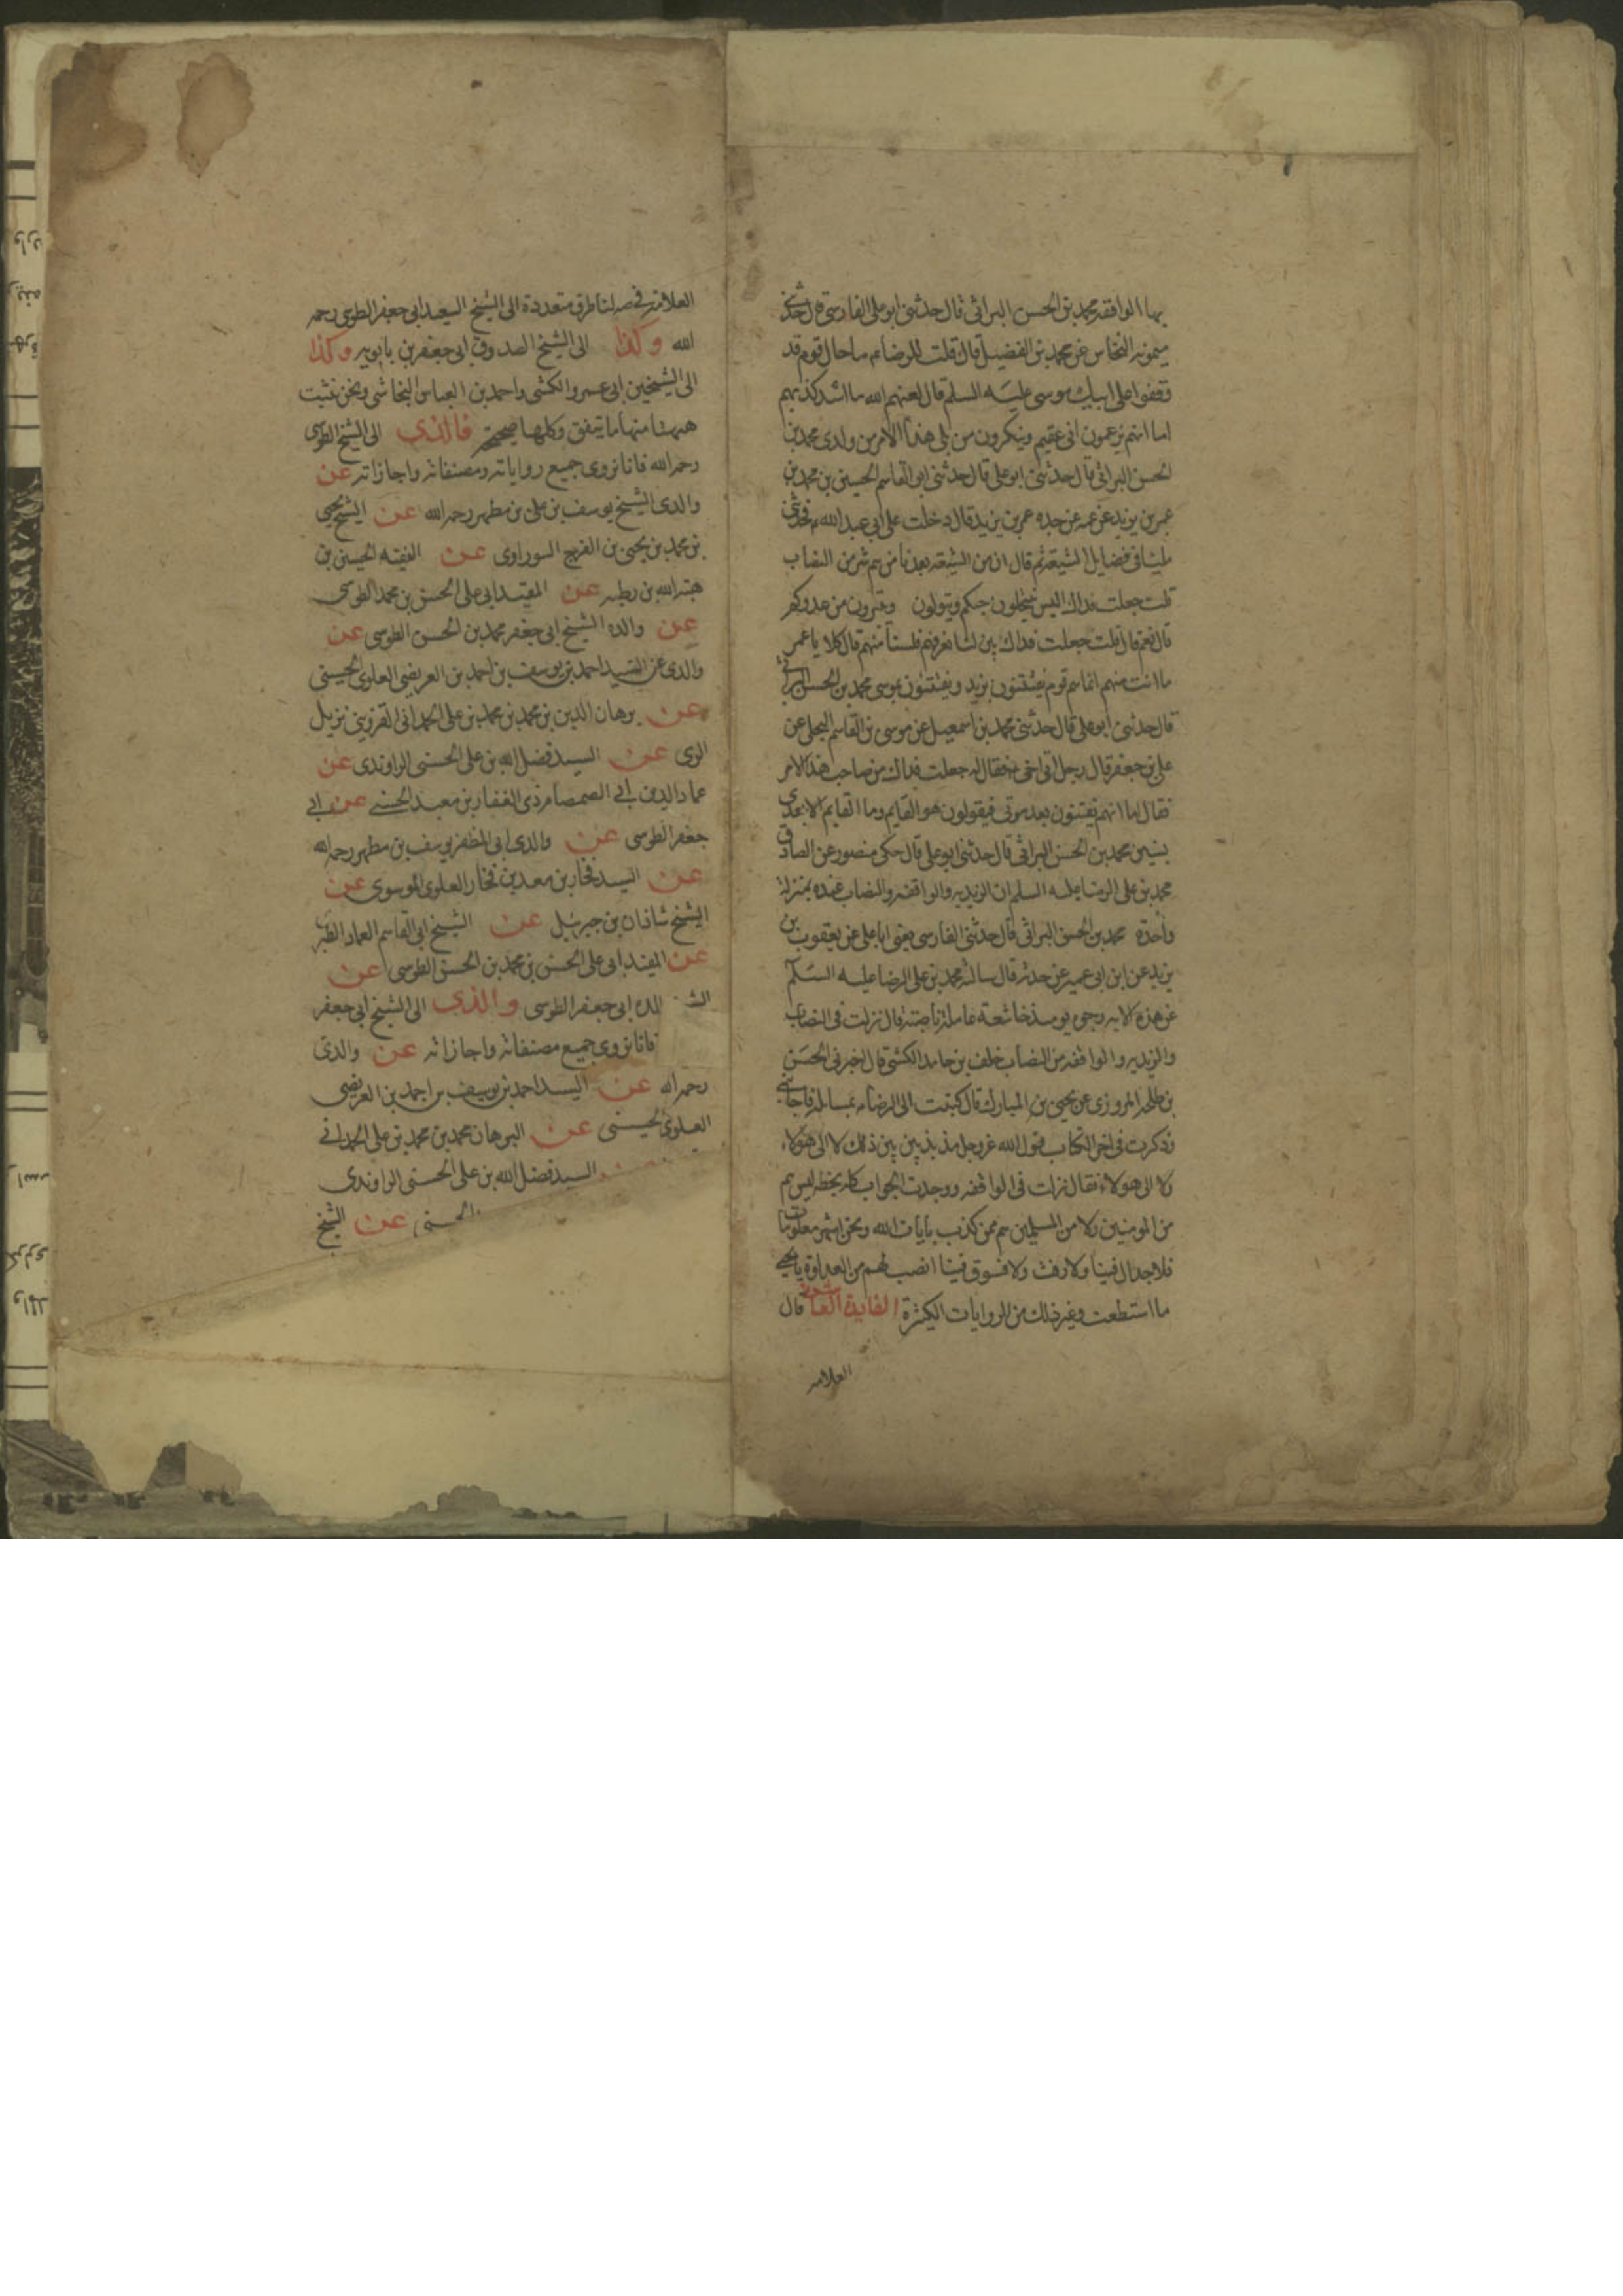 بها الواقفه محمد بن الحسن البراثى قال حدثنى ابو على الفارسى قال حدثنى
ميمون النخاس عن محمد بن الفضيل قال قلت للرضا ع ما حال قوم قد
وقفوا على ابيك موسى عليه السلم قال لعنهم الله ما اشد كذبهم
اما انهم يزعمون انى عقيم وينكرون من يلى هذا الامر من ولدى محمد بن
الحسن البراثى قال حدثنى ابو على قال حدثنى ابو القاسم الحسين بن محمد بن
عمر بن يزيد عن عمه عن جده عمر بن يزيد قال دخلت على ابى عبد الله ع فحدثنى
مليا فى فضايل الشيعه ثم قال ان من الشيعه بعدنا من هم شر من النصاب
قلت جعلت فداك اليس ينتحلون حبكم ويتولون ويتبرون من عدوكم
قال نعم قال قلت جعلت فداك بين لنا نعرفهم فلسنا منهم قال كلا يا عمر
ما انت منهم انما هم قوم يفتنون بزيد ويفتنون بموسى محمد بن الحسن البراثى
قال حدثنى ابو على قال حدثنى محمد بن اسمعيل عن موسى بن القاسم البجلى عن
على بن جعفر قال رجل اتى اخى ع فقال له جعلت فداك من صاحب هذا الامر
فقال اما انهم يفتنون بعد موتى فيقولون هو القايم وما القايم الا بعدى
بسنين محمد بن الحسن البراثى قال حدثنى ابو على قال حكى منصور عن الصادق
محمد بن على الرضا عليه السلم ان الزيديه والواقفه والنصاب عنده بمنزلة
واحدة محمد بن الحسن البراثى قال حدثنى الفارسى يعنى ابا على عن يعقوب بن
يزيد عن ابن ابى عمير عن حدثه قال سالت محمد بن على الرضا عليه السلم
عن هذه الايه وجوه يومئذ خاشعة عاملة ناصبة قال نزلت فى النصاب
والزيديه والواقفه من النصاب خلف بن حامد الكشى قال اخبرنى الحسن
بن طلحه المروزى عن يحيى بن المبارك قال كتبت الى الرضا ع بمسائل فاجابنى
وذكرت فى اخر الكتاب قول الله عز وجل مذبذبين بين ذلك لا الى هولاء
ولا الى هولاء فقال نزلت فى الواقفه ووجدت الجواب كله بخطه ليس هم
من المومنين ولا من المسلمين هم ممن كذب بايات الله ونحن اشهر معلومات
فلا جدال فينا ولا رفث ولا فسوق فينا انصب لهم من العداوة يا يحيى
ما استطعت وغير ذلك من الروايات الكثيرة الفايدة العاشرة قال
العلامه
العلامه فى صه لنا طرق متعددة الى الشيخ السعيد ابى جعفر الطوسى رحمه
الله وكذا الى الشيخ الصدوق ابى جعفر بن بابويه وكذا
الى الشيخين ابى عمرو الكشى واحمد بن العباس النجاشى ونحن نثبت
ههنا منها ما يتفق وكلها صحيحة فالذى الى الشيخ الطوسى
رحمه الله فانا نروى جميع رواياته ومصنفاته واجازاته عن
والدى الشيخ يوسف بن على بن مطهر رحمه الله عن الشيخ يحيى
بن محمد بن يحيى بن الفرج السوراوى عن الفقيه الحسين بن
هبة الله بن رطبه عن المفيد ابى على الحسن بن محمد الطوسى
عن والده الشيخ ابى جعفر محمد بن الحسن الطوسى عن
والدى عن السيد احمد بن يوسف بن احمد بن العريضى العلوى الحسينى
عن برهان الدين بن محمد بن محمد بن على الحمدانى القزوينى نزيل
الرى عن السيد فضل الله بن على الحسنى الراوندى عن
عماد الدين ابى الصمصام ذى الفقار بن معبد الحسنى عن ابى
جعفر الطوسى عن والدى ابى المظفر يوسف بن مطهر رحمه الله
عن السيد فخار بن معد بن فخار العلوى الموسوى عن
الشيخ شاذان بن جبرئيل عن الشيخ ابى القاسم العماد الطبرى
عن المفيد ابى على الحسن بن محمد بن الحسن الطوسى عن
والده ابى جعفر الطوسى والذى الى الشيخ ابى جعفر
فانا نروى جميع مصنفاته واجازاته عن والدى
رحمه الله عن السيد احمد بن يوسف بن احمد بن العريضى
العلوى الحسينى عن البرهان محمد بن محمد بن على الحمدانى
السيد فضل الله بن على الحسنى الراوندى
الحسنى عن الشيخ